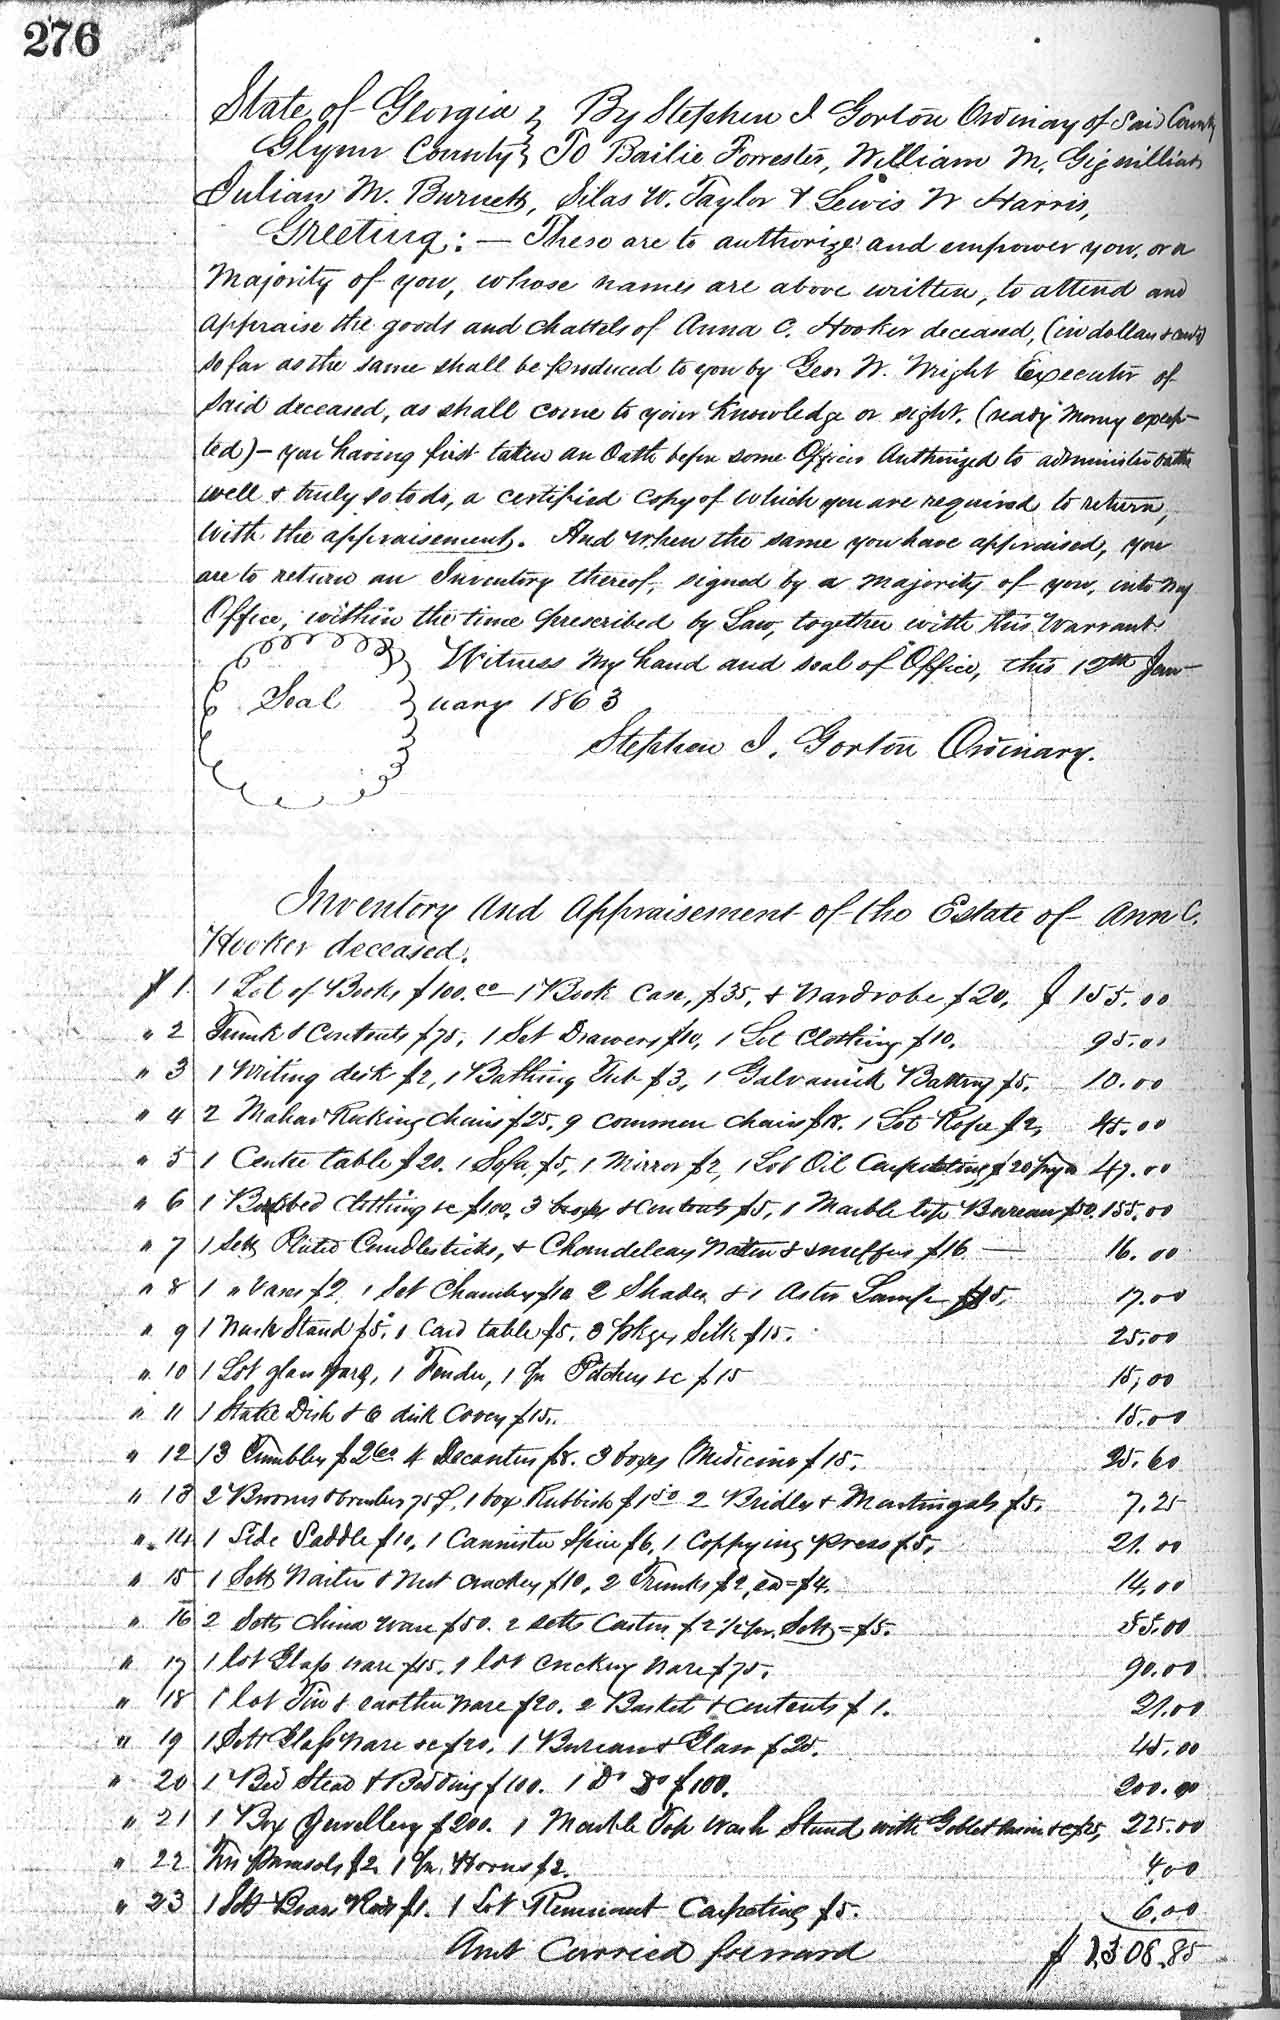 276
State of Georgia } By Stephen J Gorton Ordinary of Said County
Glynn County } To Bailie Forrester, William M. Gignilliat
Julian M. Burnett, Silas W. Taylor & Lewis W Harris,
Greeting: — These are to authorize and empower you, or a
Majority of you, whose names are above written, to attend and
appraise the goods and chattels of Anna C. Hooker deceased, (in dollars & cents)
so far as the same shall be produced to you by Geor W. Wright Executor of
said deceased, as shall come to your knowledge or sight. (ready Money excep-
ted) — you having first taken an Oath before some Officer Authorized to administer oaths
well & truly so to do, a certified copy of which you are required to return,
With the appraisement. And when the same you have appraised, you
are to return an Inventory thereof, signed by a majority of you, into my
Office, within the time prescribed by Law, together with this Warrant
Witness My hand and seal of Office, this 12th Jan-
Seal
uary 1863
Stephen J. Gorton Ordinary.
Inventory And Appraisement of the Estate of Ann C.
Hooker deceased.
1 1 Lot of Books $100.00 — 1 Book Case, $35, & Wardrobe $20, $ 155.00
" 2 Trunk & Contents $75, 1 Set Drawers $10, 1 Lot Clothing $10. 95.00
" 3 1 Writing desk $2, 1 Bathing Tub $3, 1 Galvanick Battery $5. 10.00
" 4 2 Mahar Rocking Chairs $25. 9 common chairs $18. 1 Lot Rope $2, 45.00
" 5 1 Centre table $20. 1 Sofa $5, 1 Mirror $2, 1 Lot Oil Carpeting $20 47.00
" 6 1 bed Clothing &c $100, 3 boxes & contents $5, 1 Marble top Bureau $50. 155.00
" 7 1 Sett Plated Candlesticks, & & snuffers $16 — 16.00
" 8 1 " Vases $2. 1 Set Chamber $10 2 Shades & 1 Astor Lamp $5, 17.00
" 9 1 Wash Stand $5. 1 Card table $5. 3 pkges Silk $15. 25.00
" 10 1 Lot glass ware, 1 Fender, 1 pr Pitchers &c $15 15,00
" 11 1 Dish & 6 dish Covers $15. 15.00
" 12 13 Tumblers $2.60 4 Decanters $8. 3 boxes Medicine $15. 25.60
" 13 2 Brooms & brushes 75¢, 1 box Rubbish $1.50 2 Bridles & Martingals $5. 7.25
" 14 1 Side Saddle $10, 1 Cannister Spice $6, 1 Coppying Press $5, 21.00
" 15 1 Sett Waiters & Nut crackers $10, 2 Trunks $2, ea = $4. 14,00
" 16 2 Setts China ware $50. 2 setts Castors $2½ pr. Sett = $5. 55.00
" 17 1 lot Glass ware $15. 1 lot crockery ware $75. 90.00
" 18 1 lot Tin & earthen ware $20. 2 Basket & contents $1. 21.00
" 19 1 Sett Glass ware &c $20. 1 Bureau & Glass $25. 45.00
" 20 1 Bed Stead & Bedding $100. 1 Do Do $100. 200.00
" 21 1 Box Jewellery $200. 1 Marble Top Wash Stand with Goblet basin &c $25, 225.00
" 22 Two Parasols $2 1 pr. Horns $2. 4.00
" 23 1 Sett Brass Rods $1. 1 Lot Remnant Carpeting $5. 6.00
Amt Carried forward $ 1,308.85